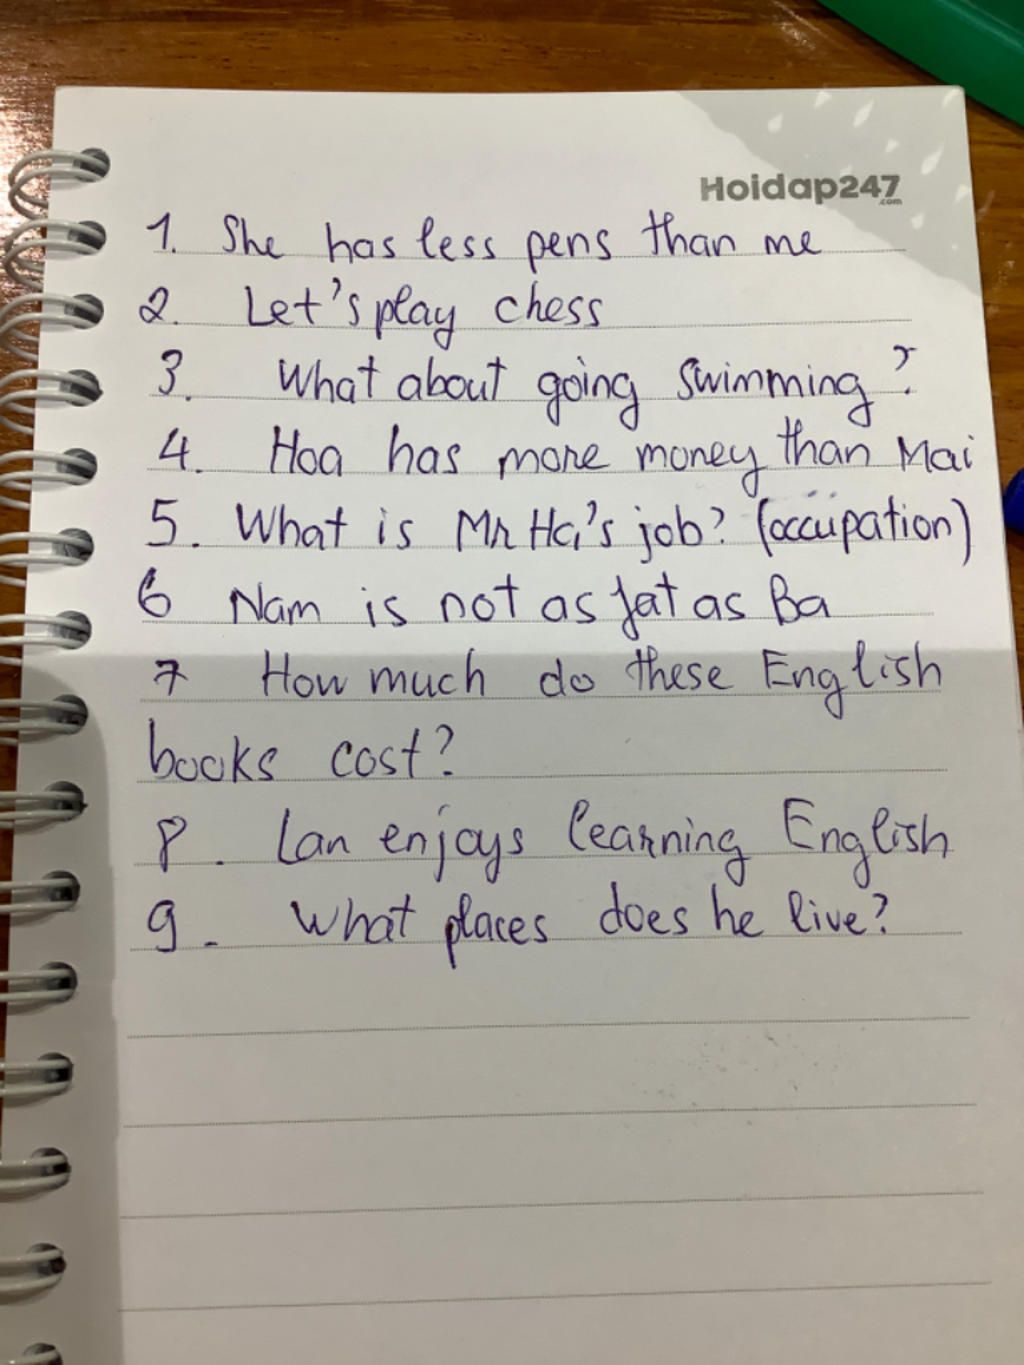 Hoidap247
.com
1. She has less pens than me
2. Let's play chess
3. What about going swimming?
4. Hoa has more money than Mai
5. What is Mr Hai's job? (occupation)
6 Nam is not as fat as Ba
7 How much do these English
books cost?
8. Lan enjoys learning English
9. What places does he live?